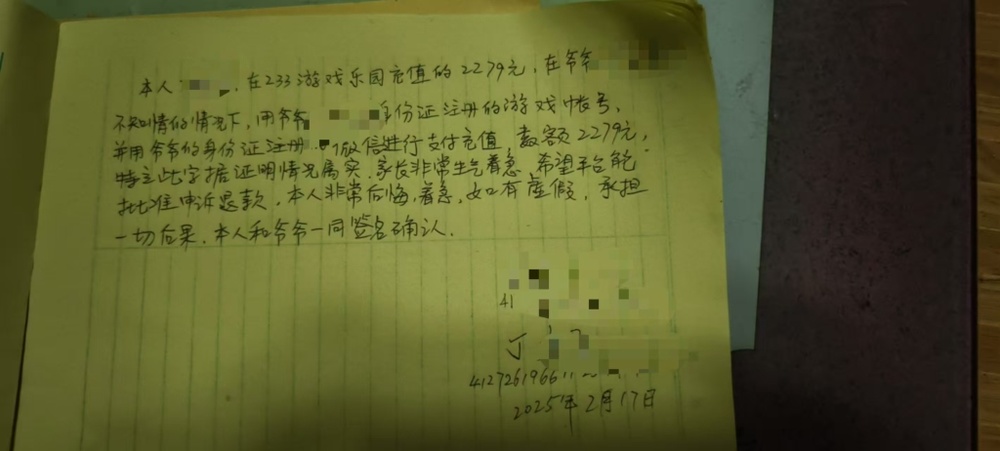 本人 在233游戏乐园充值的2279元,在爷爷
不知情的情况下,用爷爷 身份证注册的游戏帐号,
并用爷爷的身份证注册 微信进行支付充值,数额2279元,
特立此字据证明情况属实,家长非常生气着急,希望平台能
批准申诉退款,本人非常后悔,着急,如有虚假,承担
一切后果,本人和爷爷一同签名确认.
41
4127261966
2025年2月17日